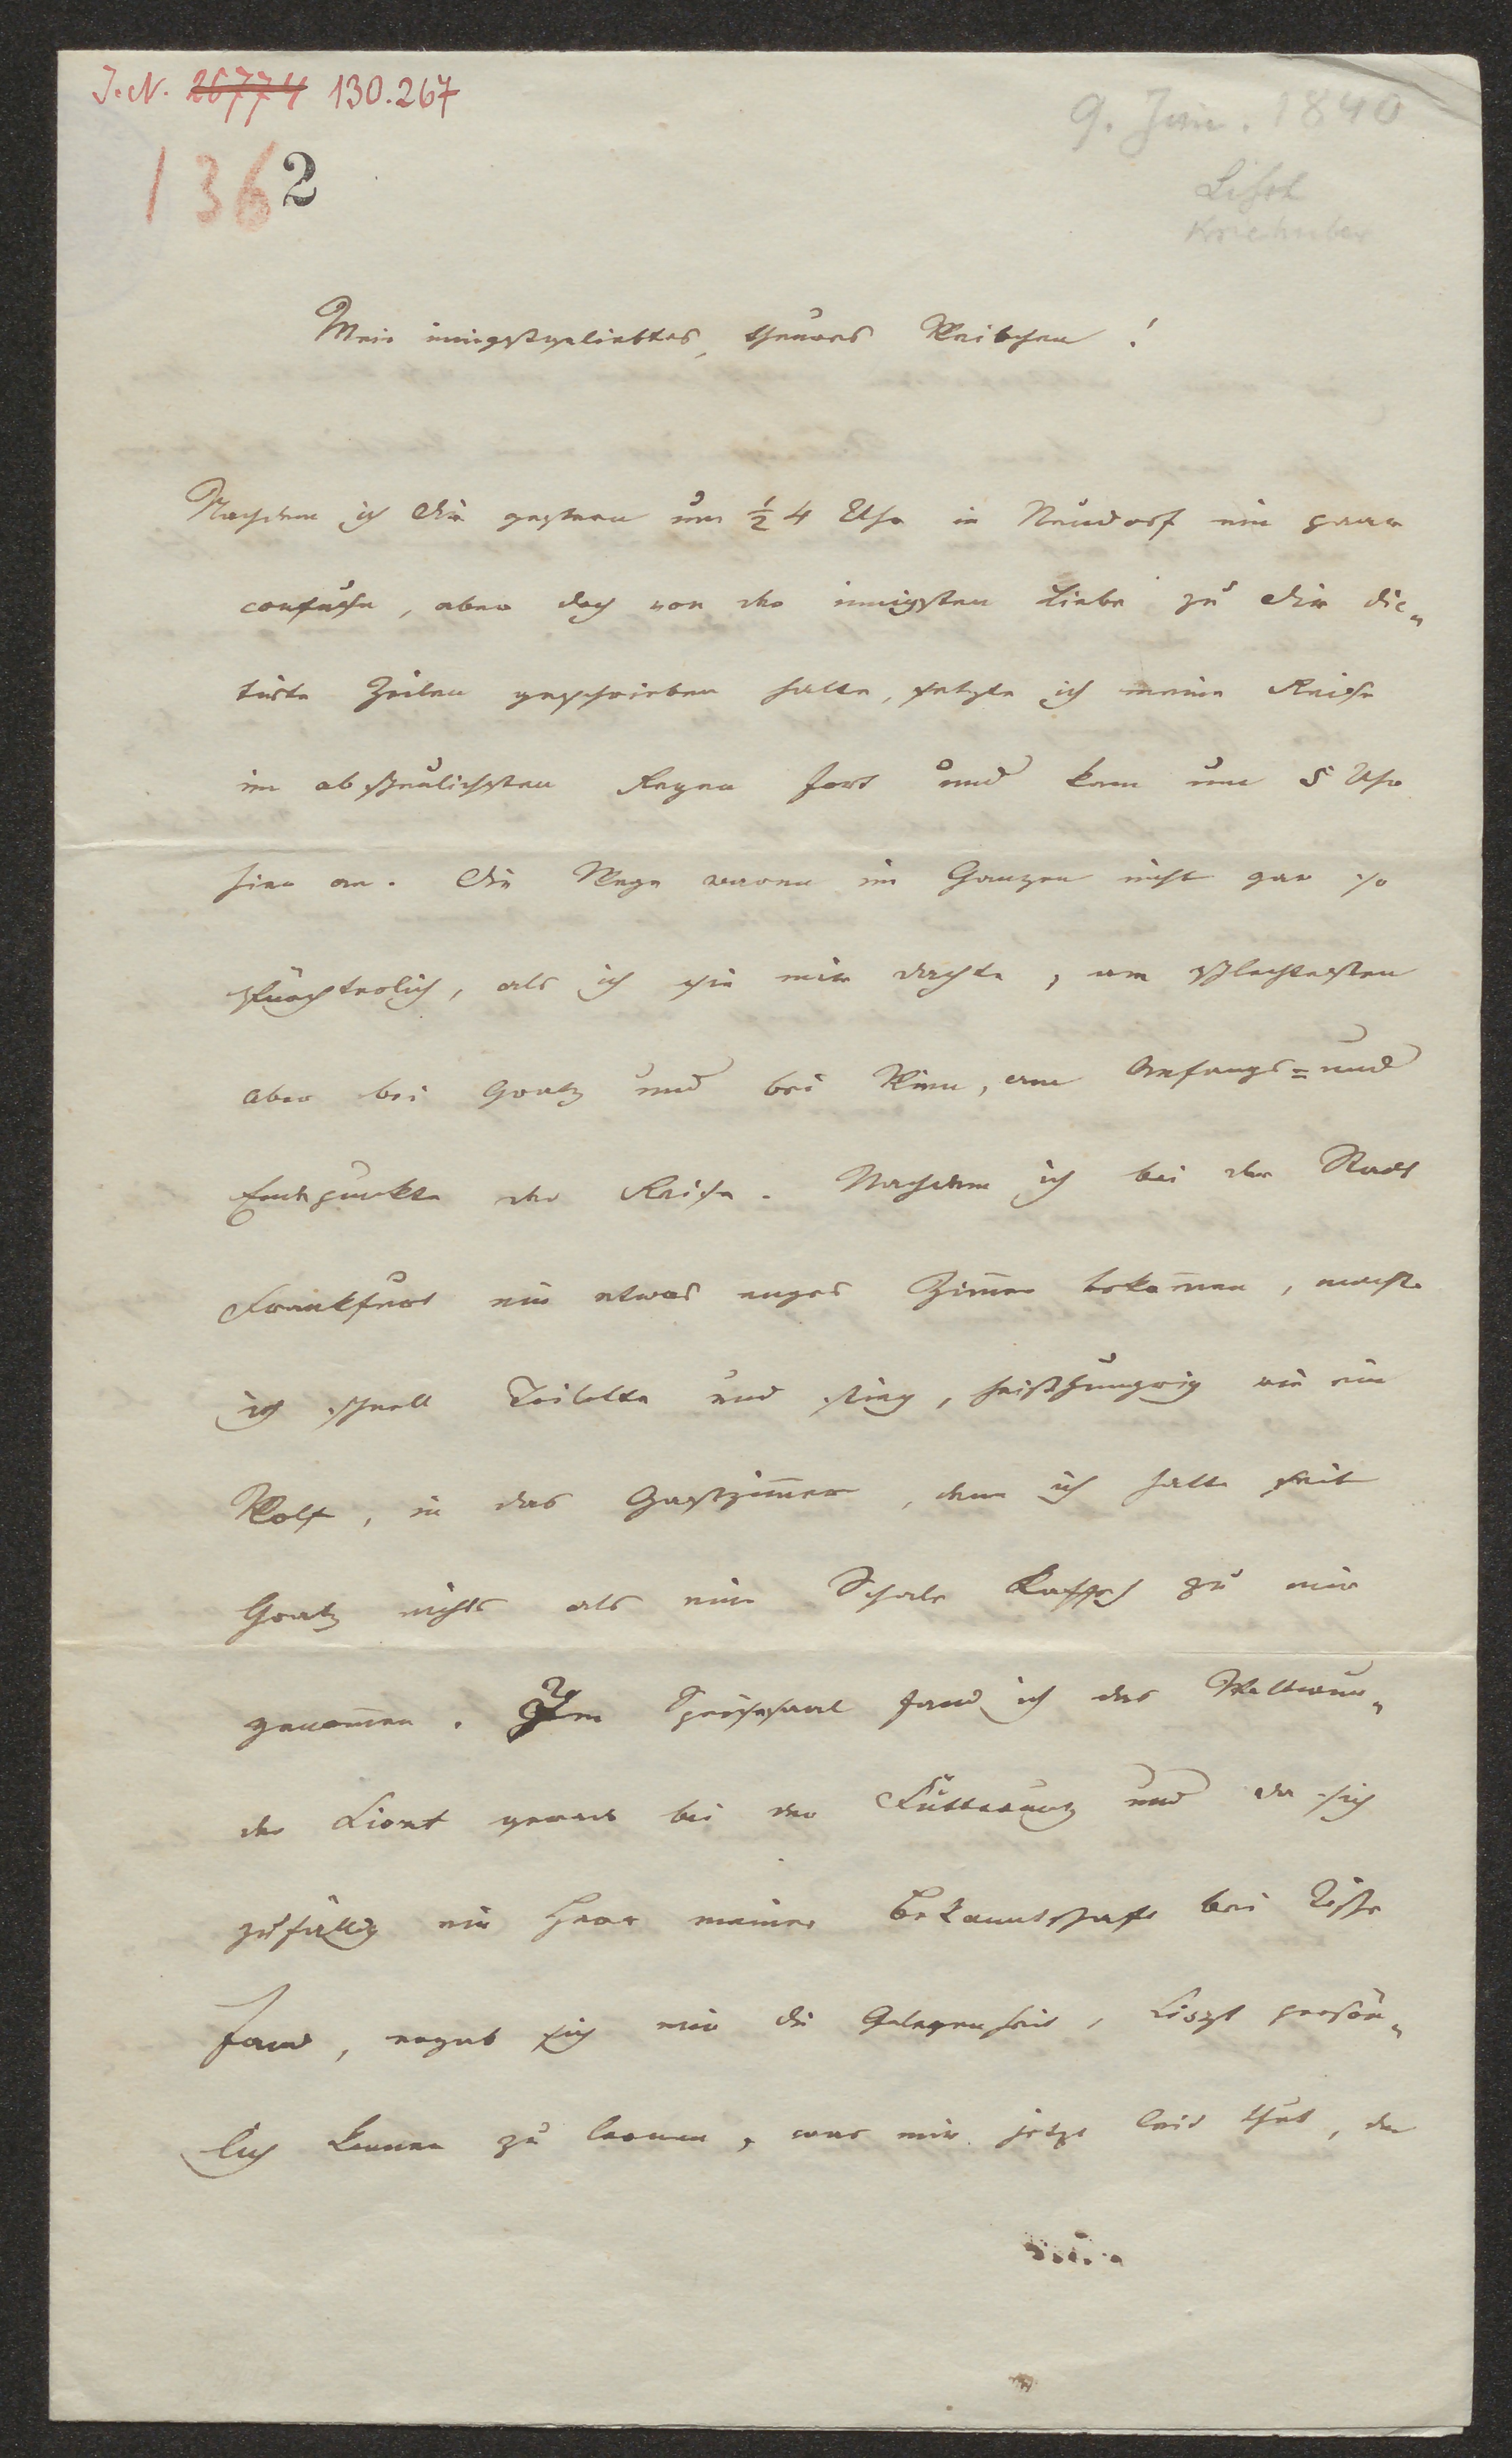 J. N. 26774 130.267
9. Jun. 1840
1362
Liszt
Kriehuber
Mein innigstgeliebtes, theures Weibchen!
Nachdem ich Dir gestern um ½ 4 Uhr in Neudorf ein paar
confuse, aber doch von der innigsten Liebe zu Dir dic-
tirte Zeilen geschrieben hatte, setzte ich meine Reise
im abscheulichsten Regen fort und kam um 5 Uhr
hier an. Die Wege waren im Ganzen nicht gar so
fürchterlich, als ich sie mir dachte, am schlechtesten
aber bei Gratz und bei Wien, am Anfangs= und
Endpunkte der Reise. Nachdem ich bei der Stadt
Frankfurt ein etwas enges Zim̄er bekom̄en, machte
ich schnell Toilette und stieg, heißhungrig wie ein
Wolf, in das Gastzim̄er, denn ich hatte seit
Gratz nichts als eine Schale Kaffeh zu mir
genom̄en. Im Speisesaal fand ich das Weltwun-
der Liszt gerade bei der Fütterung und da sich
zufällig ein Herr meiner Bekanntschaft bei Tische
fand, ergab sich mir die Gelegenheit, Liszt persön-
lich kennen zu lernen, was mir jetzt leid thut, da